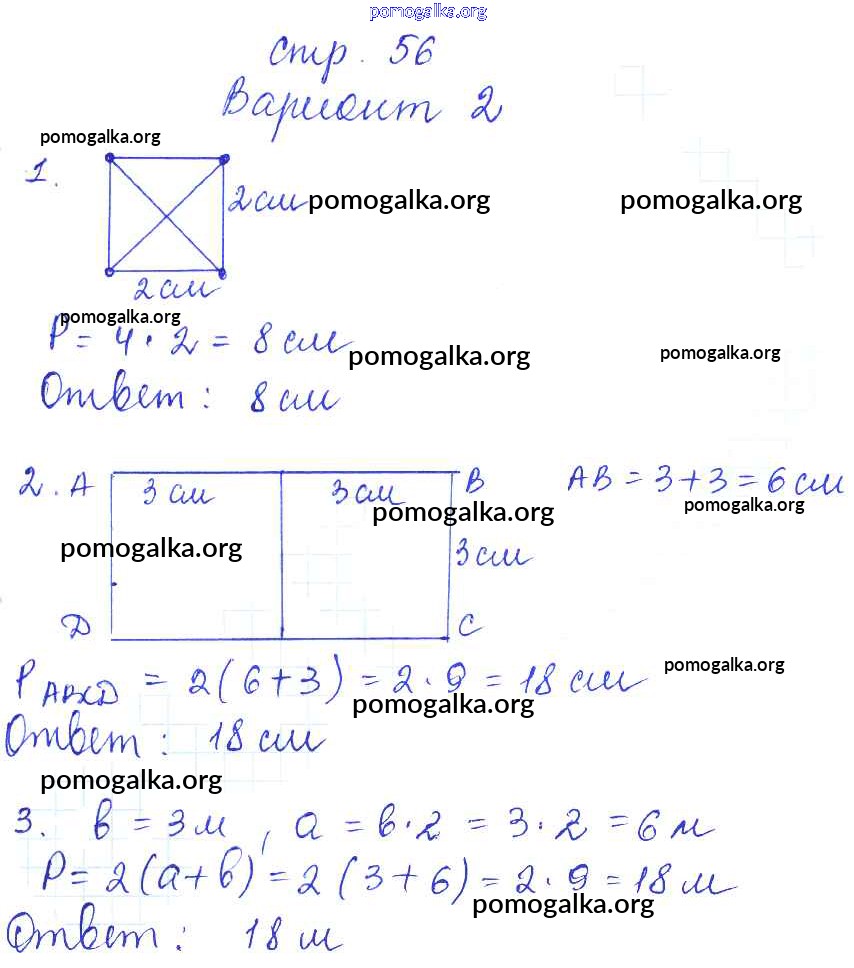 pomogalka.org
Стр. 56
Вариант 2
pomogalka.org
1.
2 см pomogalka.org pomogalka.org
2 см
pomogalka.org
P = 4 · 2 = 8 см
pomogalka.org pomogalka.org
Ответ: 8 см
2. A 3 см 3 см B AB = 3 + 3 = 6 см
pomogalka.org pomogalka.org
pomogalka.org 3 см
D C
P ABCD = 2(6+3) = 2 · 9 = 18 см pomogalka.org
pomogalka.org
Ответ: 18 см
pomogalka.org
3. b = 3 м, a = b · 2 = 3 · 2 = 6 м
P = 2(a+b) = 2(3+6) = 2 · 9 = 18 м
pomogalka.org
Ответ: 18 м